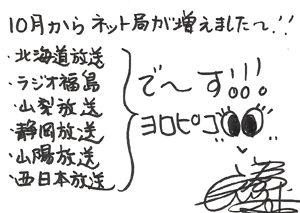 10月からネット局が増えました〜!!
・北海道放送
・ラジオ福島
・山梨放送
・静岡放送
・山陽放送
・西日本放送
で〜す!!!
ヨロピコ